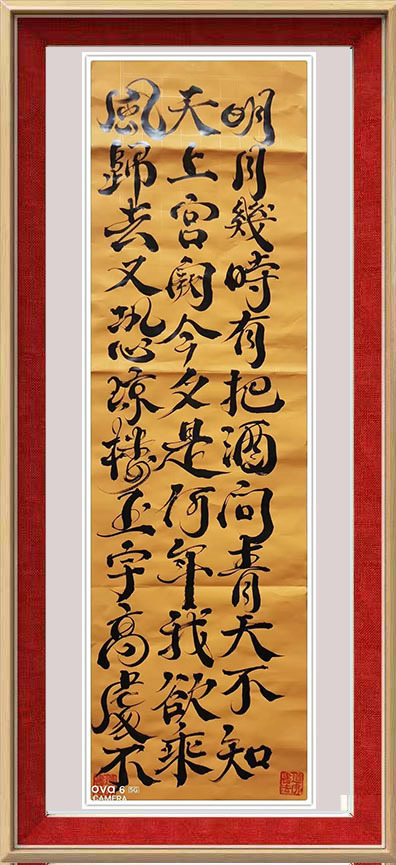 明月幾時有把酒問青天不知
天上宮闕今夕是何年我欲乘
風歸去又恐琼樓玉宇高處不
ova 6 5G
CAMERA